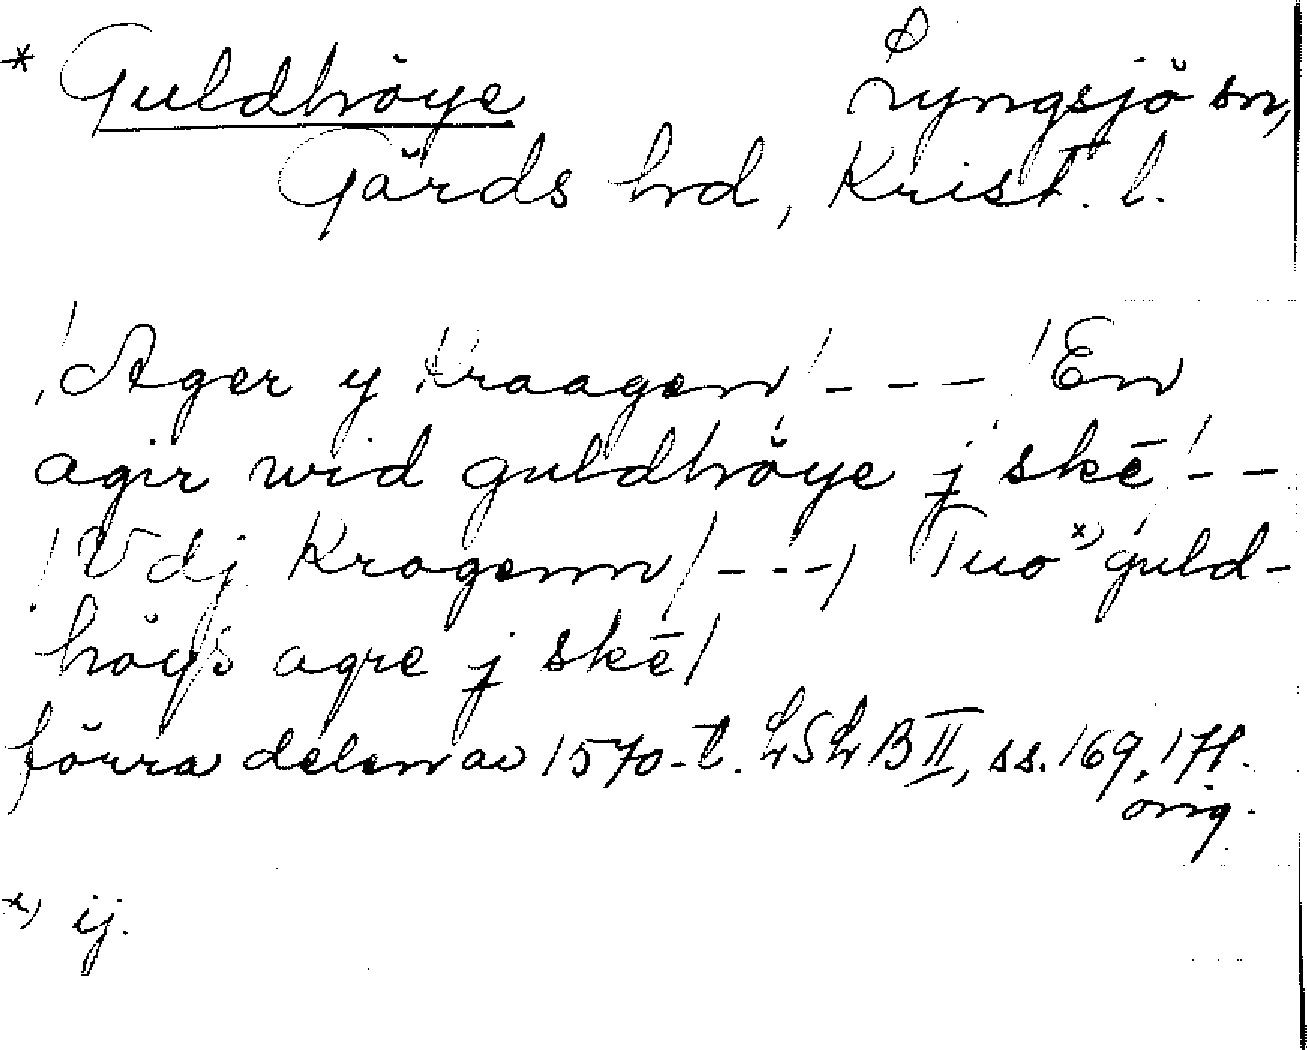 * Guldhöye Lyngsjö sn,
Gärds hd, Krist. l.
/Ager y Kraagen/ - - - /En
agir wid guldhöye j skē/ - -
/Vdj Kragenn/ - - -/ Tuo x) guld-
höys agre j skē/
förra delen av 1570-t. LSLB II, ss. 169, 171.
orig.
x) ij.